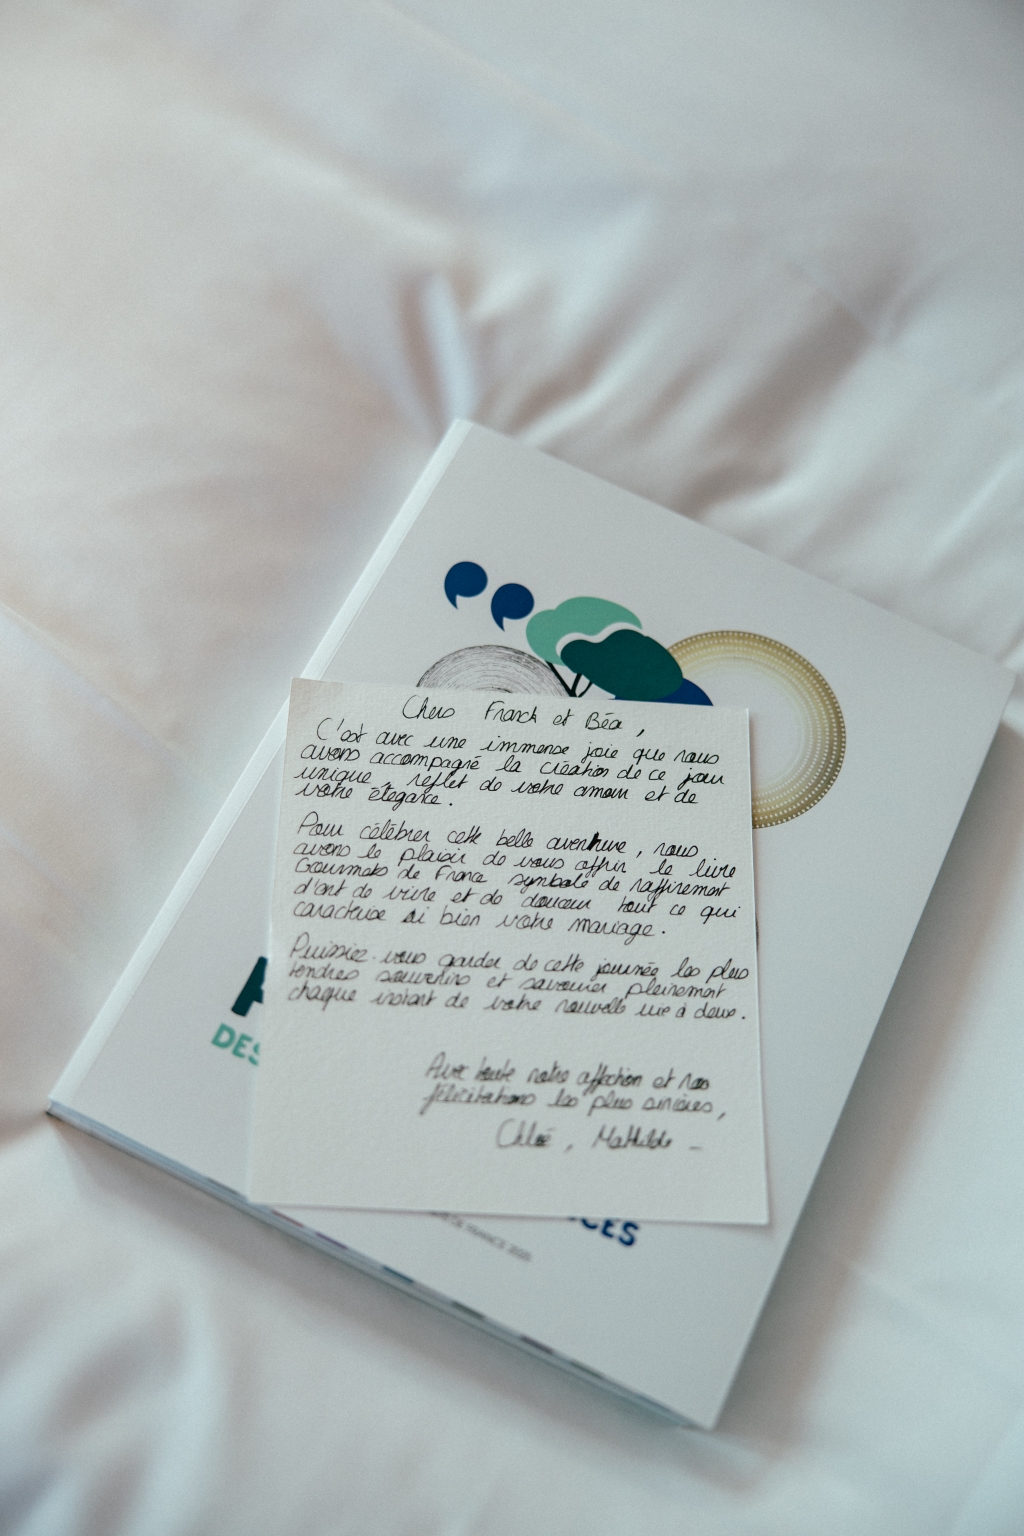 Chers Franck et Béa,
C'est avec une immense joie que nous
avons accompagné la création de ce jour
unique, reflet de votre amour et de
votre élégance.
Pour célébrer cette belle aventure, nous
avons le plaisir de vous offrir le livre
Gourmets de France symbole de raffinement
d'art de vivre et de douceur tout ce qui
caractérise si bien votre mariage.
Puissiez-vous garder de cette journée les plus
tendres souvenirs et savourer pleinement
chaque instant de votre nouvelle vie à deux.
Avec toute notre affection et nos
félicitations les plus sincères,
Chloé, Mathilde -
DES
CES